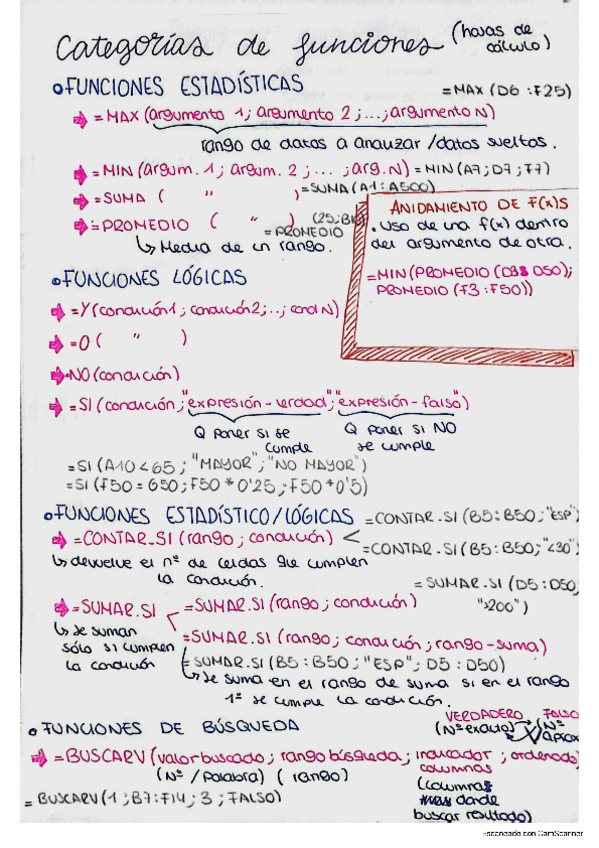 Categorías de funciones (hojas de cálculo)
• FUNCIONES ESTADÍSTICAS
=MAX (D6:F25)
=MAX (argumento 1; argumento 2; ...; argumento N)
rango de datos a analizar /datos sueltos.
=MIN (argum. 1; argum. 2; ... ; arg. N) =MIN (A7; D7; F7)
=SUMA ( " ) =SUMA (A1:A500)
=PROMEDIO ( " ) =PROMEDIO
↳ Media de un rango.
ANIDAMIENTO DE F(X)S
• Uso de una f(x) dentro
del argumento de otra.
=MIN(PROMEDIO (D3:D50);
PROMEDIO (F3:F50))
• FUNCIONES LÓGICAS
=Y (condición1; condición2; ..; cond N)
=O ( " )
=NO (condición)
=SI (condición; "expresión-verdad"; "expresión-falso")
Q poner si se cumple
Q poner si NO se cumple
=SI (A10<65; "MAYOR"; "NO MAYOR")
=SI (F50=650; F50*0'25; F50*0'5)
• FUNCIONES ESTADÍSTICO/LÓGICAS
=CONTAR.SI (B5:B50; "ESP")
=CONTAR.SI (rango; condición)
=CONTAR.SI (B5:B50; "<30")
↳ devuelve el nº de celdas que cumplen
la condición.
=SUMAR.SI (D5:D50;
">200")
=SUMAR.SI
=SUMAR.SI (rango; condición)
↳ se suman
sólo si cumplen
la condición
=SUMAR.SI (rango; condición; rango-suma)
=SUMAR.SI (B5:B50; "ESP"; D5:D50)
↳ Se suma en el rango de suma si en el rango
1º se cumple la condición.
• FUNCIONES DE BÚSQUEDA
VERDADERO FALSO
(Nº exacto) (Nº aprox
=BUSCARV (valor buscado; rango búsqueda; indicador columnas; ordenado)
(Nº / palabra) (rango)
(columnas
donde
buscar resultado)
=BUSCARV (1; B7:F14; 3; FALSO)
Escaneado con CamScanner